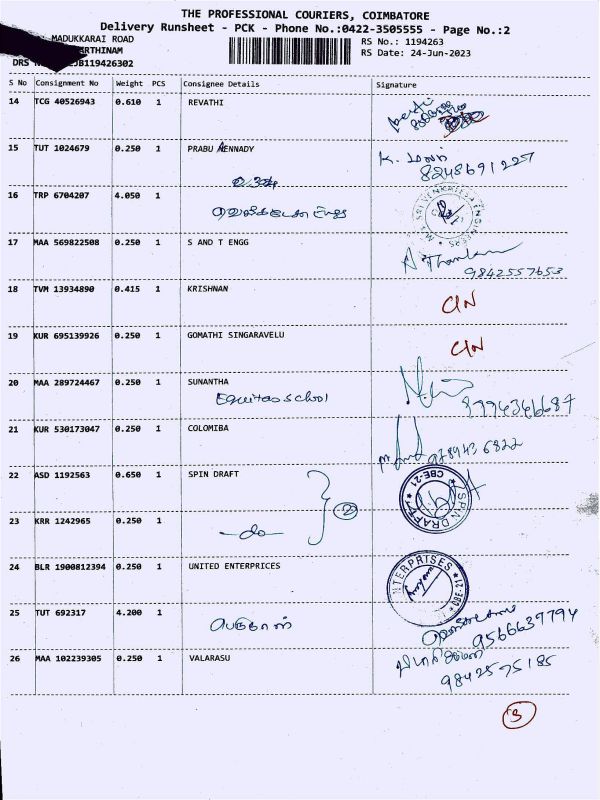 THE PROFESSIONAL COURIERS, COIMBATORE
Delivery Runsheet - PCK - Phone No.:0422-3505555 - Page No.:2
MADUKKARAI ROAD
RS No.: 1194263
RS Date: 24-Jun-2023
DRS
JB119426302
S No Consignment No Weight PCS Consignee Details Signature
14 TCG 40526943 0.610 1 REVATHI
15 TUT 1024679 0.250 1 PRABU KENNADY
8248691227
16 TRP 6704207 4.050 1
SRI VENKATESA ENGINEERS
17 MAA 569822508 0.250 1 S AND T ENGG
9842557653
18 TVM 13934890 0.415 1 KRISHNAN C/N
19 KUR 695139926 0.250 1 GOMATHI SINGARAVELU C/N
20 MAA 289724467 0.250 1 SUNANTHA
Equitas school
8994346687
21 KUR 530173047 0.250 1 COLOMIBA
9789436822
22 ASD 1192563 0.650 1 SPIN DRAFT
SPIN DRAFT CBE-21
2
23 KRR 1242965 0.250 1
-do-
24 BLR 1900812394 0.250 1 UNITED ENTERPRICES
NTERPRISES * CBE-21 *
25 TUT 692317 4.200 1
பெருமாள்
9566639794
26 MAA 102239305 0.250 1 VALARASU
9842575185
3